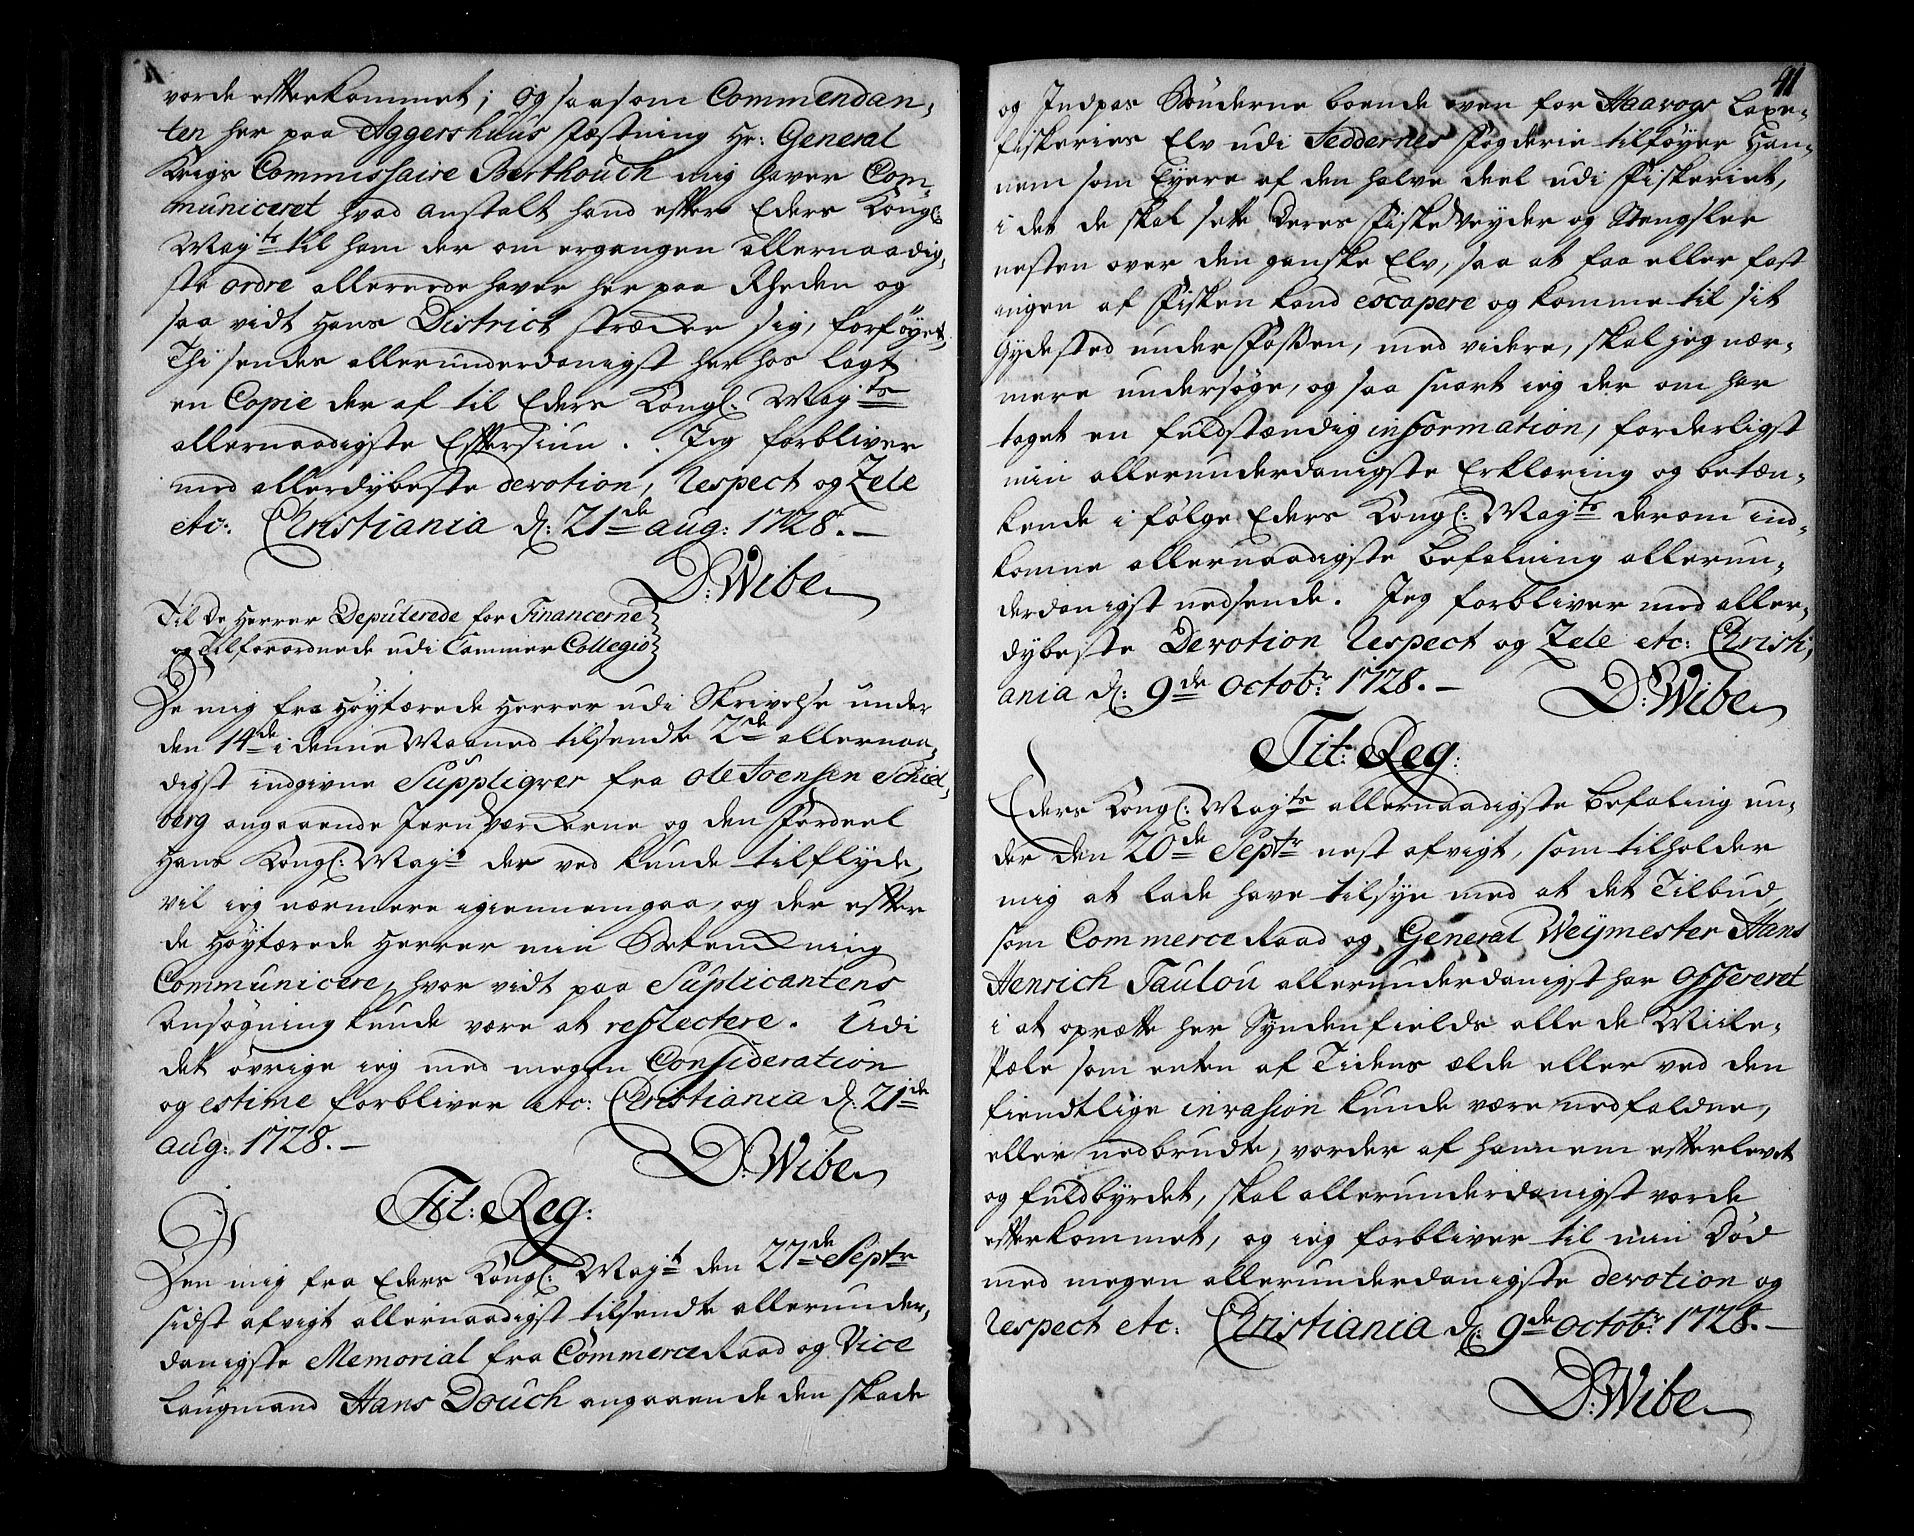 vorde efterkommet; og saasom Commendan-
ten her paa Aggershuus Fæstning Hr: General
Krigs Commissaire Berthouch mig haver Com-
municeret hvad anstalt hand efter Eders Kongl:
Maj:ts til ham der om ergangen allernaadig-
ste ordre allereede haver her paa Rheden og
saa vidt Hans District strækker sig, forføyet,
Thi sendes allerunderdanigst her hos lagt
en Copie der af til Eders Kongl: Maj:ts
allernaadigste Eftersiun. Jeg forbliver
med allerdybeste devotion, Respect og Zele
etc: Christiania d: 21de aug: 1728.
D: Wibe
Til De Herrer Deputerede for Financerne
og Tilforordnede udi Cammer Collegio
De mig fra Høytærede Herrer udi Skrivelse under
den 14de i denne Maaned tilsendte 2de allernaa-
digst indgivne Suppliqver fra Ole Joensen Schiel-
berg angaaende Jernværkerne og den Fordeel
Hans Kongl: Maj:t der ved kunde tilflyde,
vil ieg nærmere igiennemgaa, og der efter
de Høytærede Herrer min Betenkning
Communicere, hvor vidt paa Suplicantens
Ansøgning kunde være at reflectere. Udi
det øvrige ieg med megen Consideration
og estime forbliver etc: Christiania d: 21de
aug: 1728.
D: Wibe
Tit: Reg:
Den mig fra Eders Kongl: Maj:t den 27de Septr
sidst afvigt allernaadigst tilsendte allerunder-
danigste Memorial fra Commerce Raad og Vice
Laugmand Hans Douch angaaende den skade
91
og Indpas Bønderne boende oven for Haavogs Laxe-
fiskeries Elv udi Jeddernes Fogderie tilføyer Han-
nem som Eyere af den halve deel udi Fiskeriet,
i det de skal sette Deres Fiske Veyder og Stengsler
nesten over den ganske Elv, saa at faa eller fast
ingen af Fisken kand escapere og komme til sit
Gydested under Fossen, med videre, skal jeg nær-
mere undersøge, og saa snart ieg der om har
taget en fuldstændig information, forderligst
min allerunderdanigste Erklæring og betæn-
kende i følge Eders Kongl: Maj:ts derom ind-
komne allernaadigste Befalning allerun-
derdanigst nedsende. Jeg forbliver med aller-
dybeste Devotion Respect og Zele etc: Christi-
ania d: 9de Octobr: 1728.
D: Wibe
Tit: Reg:
Eders Kongl: Maj:ts allernaadigste Befaling un-
der den 20de Septr nest afvigt, som tilholder
mig at lade have tilsyn med at det Tilbud,
som Commerce Raad og General Weymester Hans
Henrich Taulou allerunderdanigst har Offereret
i at oprætte her Syndenfields alle de Miile-
Pæle som enten af Tidens ælde eller ved den
fiendtlige invasion kunde være nedfaldne,
eller nedbrudte, vorder af hannem efterlevet
og fuldbyrdet, skal allerunderdanigst vorde
efterkommet, og ieg forbliver til min Død
med megen allerunderdanigste devotion og
Respect etc: Christiania d: 9de Octobr: 1728.
D: Wibe